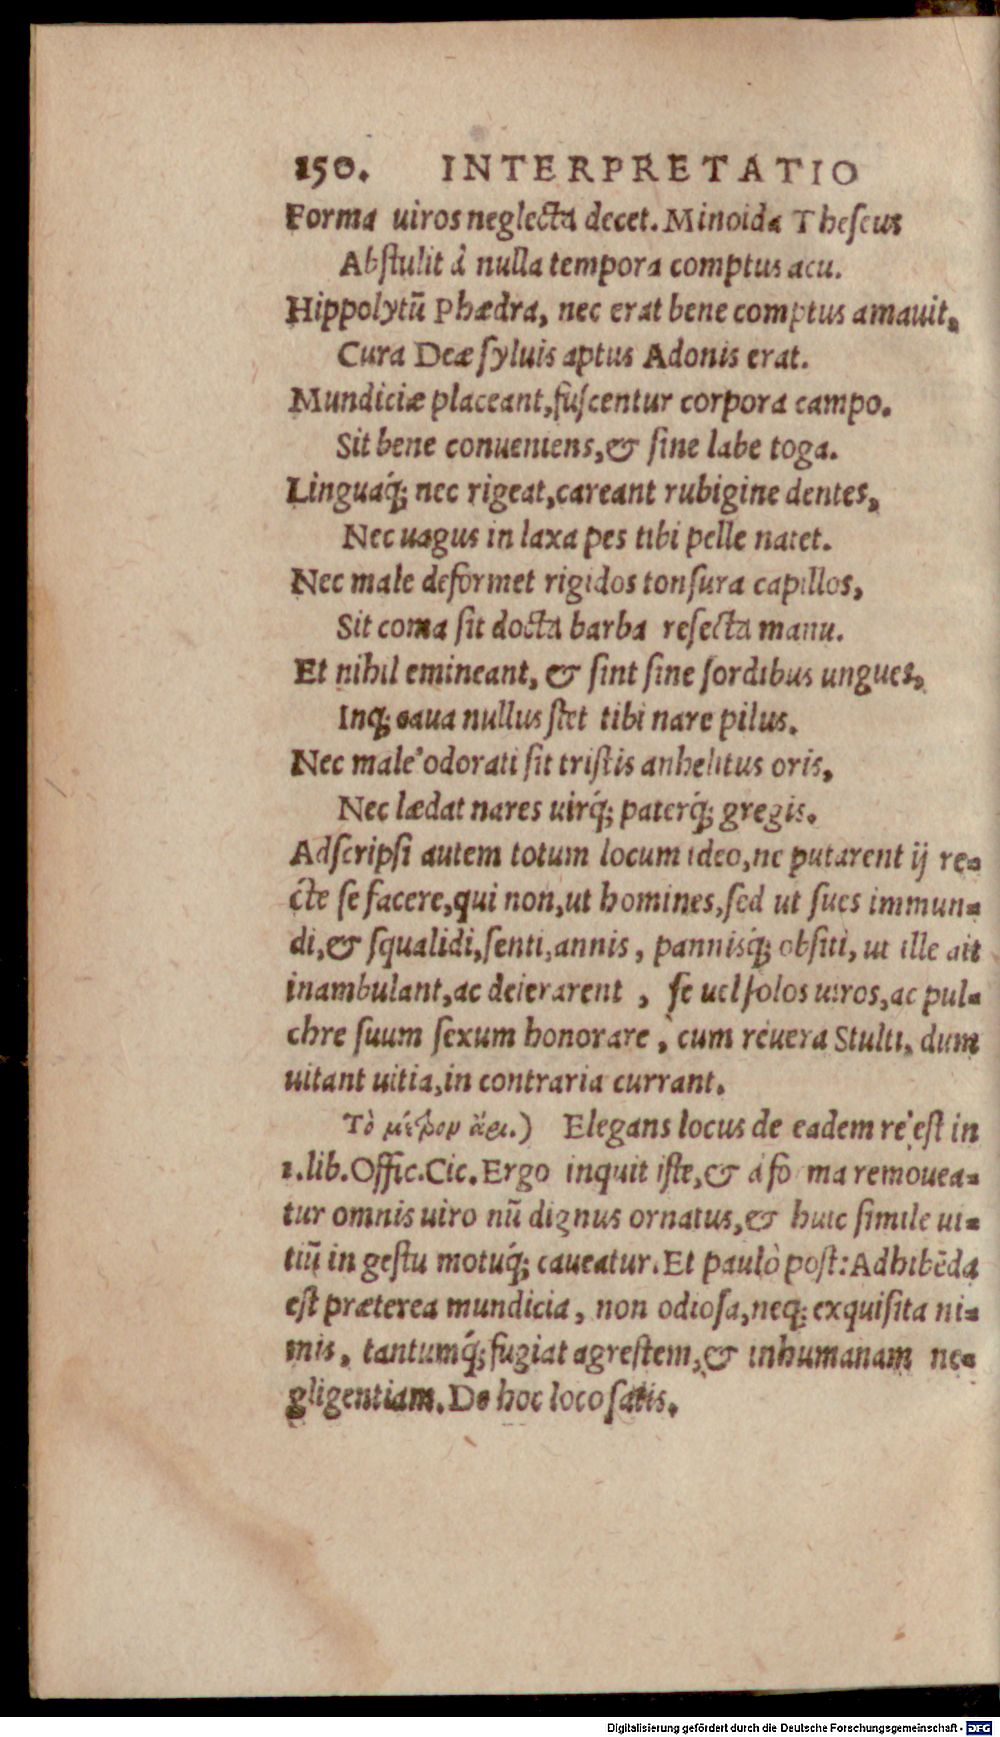 150. INTERPRETATIO
Forma uiros neglecta decet. Minoida Theseus
Abstulit à nulla tempora comptus acu.
Hippolytũ Phædra, nec erat bene comptus amauit,
Cura Deæ syluis aptus Adonis erat.
Mundiciæ placeant, fuscentur corpora campo.
Sit bene conueniens, & sine labe toga.
Linguaq́; nec rigeat, careant rubigine dentes,
Nec uagus in laxa pes tibi pelle natet.
Nec male deformet rigidos tonsura capillos,
Sit coma sit docta barba resecta manu.
Et nihil emineant, & sint sine sordibus ungues,
Inq; caua nullus stet tibi nare pilus.
Nec male odorati sit tristis anhelitus oris,
Nec lædat nares uirq́; paterq́; gregis.
Adscripsi autem totum locum ideo, ne putarent ij re-
cte se facere, qui non, ut homines, sed ut sues immun-
di, & squalidi, senti, annis, pannisq́; obsiti, ut ille ait
inambulant, ac deierarent, se uel solos uiros, ac pul-
chre suum sexum honorare, cum reuera Stulti, dum
uitant uitia, in contraria currant.
Τὸ μέτρον ἄρι.) Elegans locus de eadem re est in
1. lib. Offic. Cic. Ergo inquit iste, & à fo ma remouea-
tur omnis uiro nũ dignus ornatus, & huic simile ui-
tiũ in gestu motuq́; caueatur. Et paulò post: Adhibẽda
est præterea mundicia, non odiosa, neq; exquisita ni-
mis, tantumq́; fugiat agrestem, & inhumanam ne-
gligentiam. De hoc loco satis.
Digitalisierung gefördert durch die Deutsche Forschungsgemeinschaft - DFG